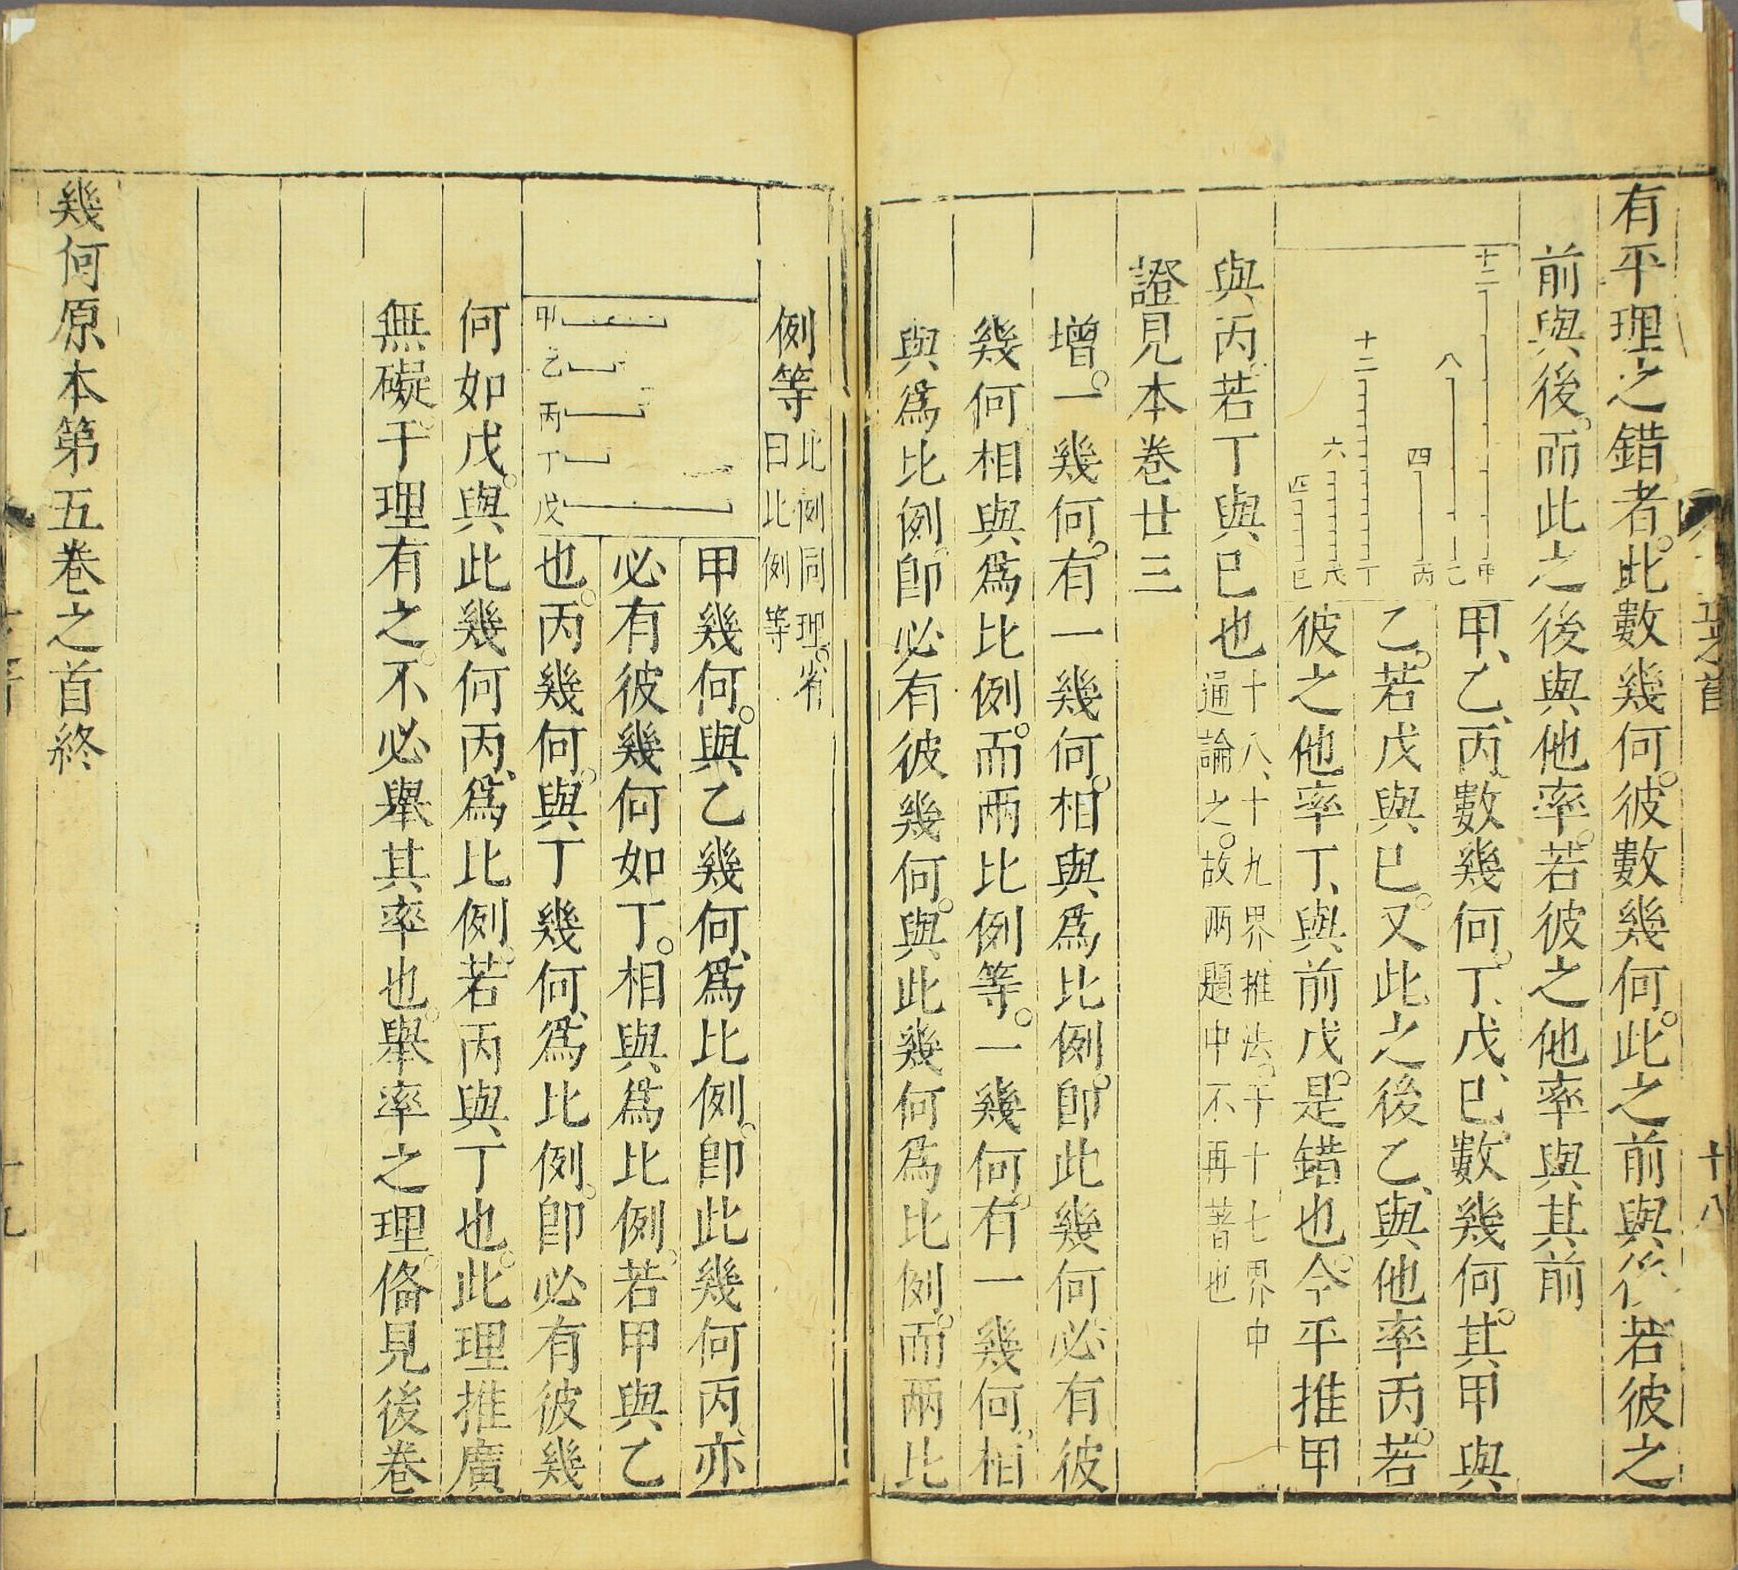 有平理之錯者。此數幾何。彼數幾何。此之前與後。若彼之
前與後。而此之後與他率。若彼之他率與其前
十二 八 四 十二 六 四
甲 乙 丙 丁 戊 己
甲、乙、丙、數幾何。丁、戊、己、數幾何。其甲與
乙。若戊與己。又此之後乙、與他率丙。若
彼之他率丁、與前戊。是錯也。今平推甲
與丙。若丁與己也
十八、十九界、推法。于十七界中
通論之。故兩題中不再著也
證見本卷廿三
增。一幾何。有一幾何。相與爲比例。即此幾何必有彼
幾何相與爲比例。而兩比例等。一幾何。有一幾何。相
與爲比例。即必有彼幾何。與此幾何爲比例。而兩比
例等
此例同理。省
曰比例等
甲
乙
丙
丁
戊
甲幾何。與乙幾何、爲比例。即此幾何丙、亦
必有彼幾何如丁。相與爲比例。若甲與乙
也。丙幾何。與丁幾何、爲比例。即必有彼幾
何如戊。與此幾何丙、爲比例。若丙與丁也。此理推廣
無礙。于理有之。不必舉其率也。舉率之理。俻見後卷
幾何原本第五卷之首終
五之首
十八
十九